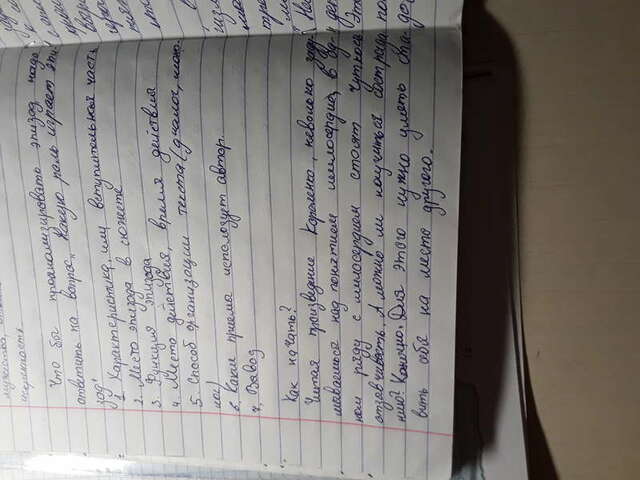 мужества,
искренность
Что бы проанализировать эпизод надо
ответить на вопрос „ Какую роль играет эпи-
зод"
1. Характеристика, или вступительная часть
2. Место эпизода в сюжете
3. Функция эпизода
4. Место действия, время действия
5. Способ организации текста (диалог, моно-
лог)
6. Какие приемы использует автор.
7. Вывод
Как начать?
Читая произведение Короленко, неволько заду-
мываешься над понятием милосердие, в од-
ном ряду с милосердием стоят чуткость
отзывчивость. А можно ли научиться сострада
нию? Конечно. Для этого нужно уметь ста-
вить себя на место другого.